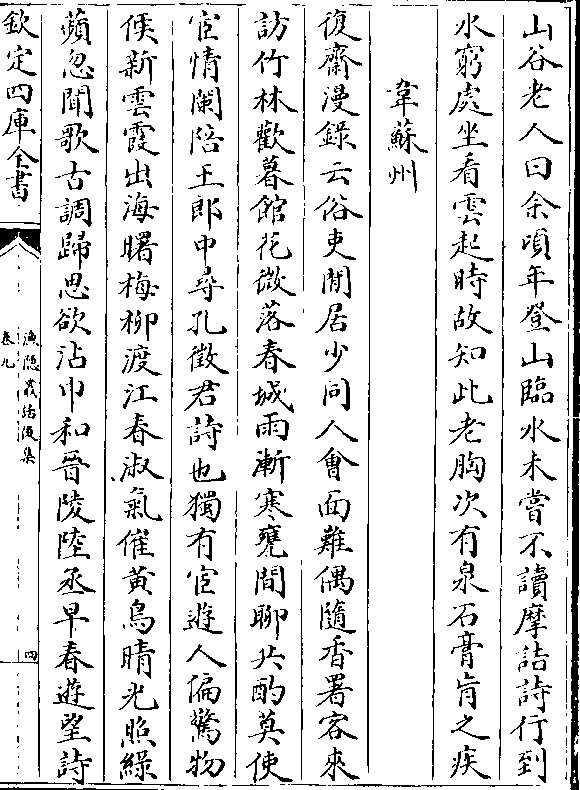 山谷老人曰余頃年登山臨水未嘗不讀摩詰詩行到
水窮處坐看雲起時故知此老胸次有泉石膏肓之疾
韋蘇州
復齋漫錄云俗吏閒居少同人會面難偶隨香署客來
訪竹林歡暮館花微落春城雨漸寒甕間聊共酌莫使
宦情闌陪王郎中尋孔徵君詩也獨有宦遊人偏驚物
候新雲霞出海曙梅柳渡江春淑氣催黃鳥晴光照綠
蘋忽聞歌古調歸思欲沾巾和晉陵陸丞早春遊望詩
欽定四庫全書
漁隱叢話後集
卷九
四